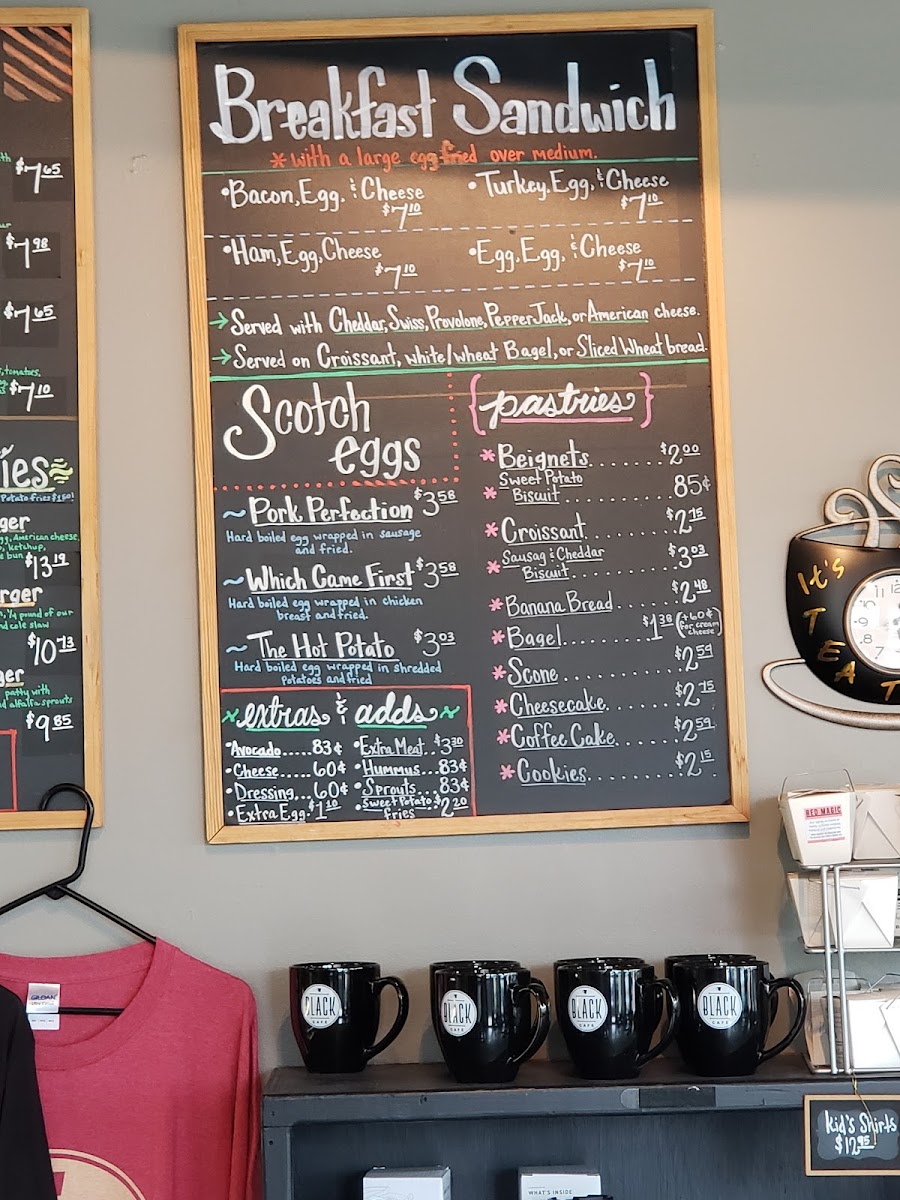 Breakfast Sandwich
*with a large egg fried over medium.
•Bacon, Egg, & Cheese
$7.10
•Turkey, Egg, & Cheese
$7.10
•Ham, Egg, Cheese
$7.10
•Egg, Egg, & Cheese
$7.10
→Served with Cheddar, Swiss, Provolone, PepperJack, or American cheese.
→Served on Croissant, white/wheat Bagel, or Sliced Wheat bread.
Scotch
eggs
~Pork Perfection $3.58
Hard boiled egg wrapped in sausage
and fried.
~Which Came First $3.58
Hard boiled egg wrapped in chicken
breast and fried.
~The Hot Potato $3.03
Hard boiled egg wrapped in shredded
potatoes and fried
extras & adds
•Avocado.....83¢
•Cheese.....60¢
•Dressing...60¢
•Extra Egg.$1.10
•Extra Meat..$3.30
•Hummus...83¢
•Sprouts...83¢
•Sweet Potato
fries $2.20
{pastries}
*Beignets........$2.00
*Sweet Potato
Biscuit..........85¢
*Croissant.......$2.75
*Sausag & Cheddar
Biscuit..........$3.03
*Banana Bread....$2.48
*Bagel.......$1.38 (+60¢
for cream
cheese)
*Scone..........$2.59
*Cheesecake......$2.75
*Coffee Cake.....$2.59
*Cookies........$2.15
$7.65
$7.98
$7.65
tomatoes,
$7.10
ies
Potato fries $1.50!
ger
gg, American cheese,
ketchup,
bun $13.19
rger
1/4 pound of our
nd cole slaw
$10.73
ger
patty with
d alfalfa sprouts
$9.85
It's
TEA T
12
11
1
RED MAGIC
BLACK
CAFE
BLACK
CAFE
BLACK
CAFE
BLACK
CAFE
Kid's Shirts
$12.95
WHAT'S INSIDE